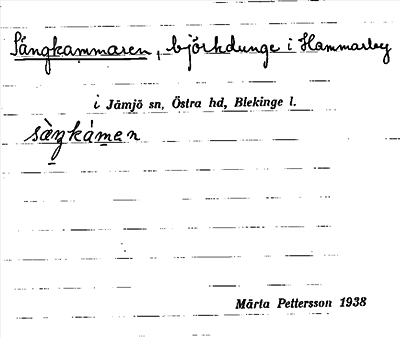 Sängkammaren, björkdunge i Hammarby
i Jämjö sn, Östra hd, Blekinge l.
sàŋkámen
Märta Pettersson 1938